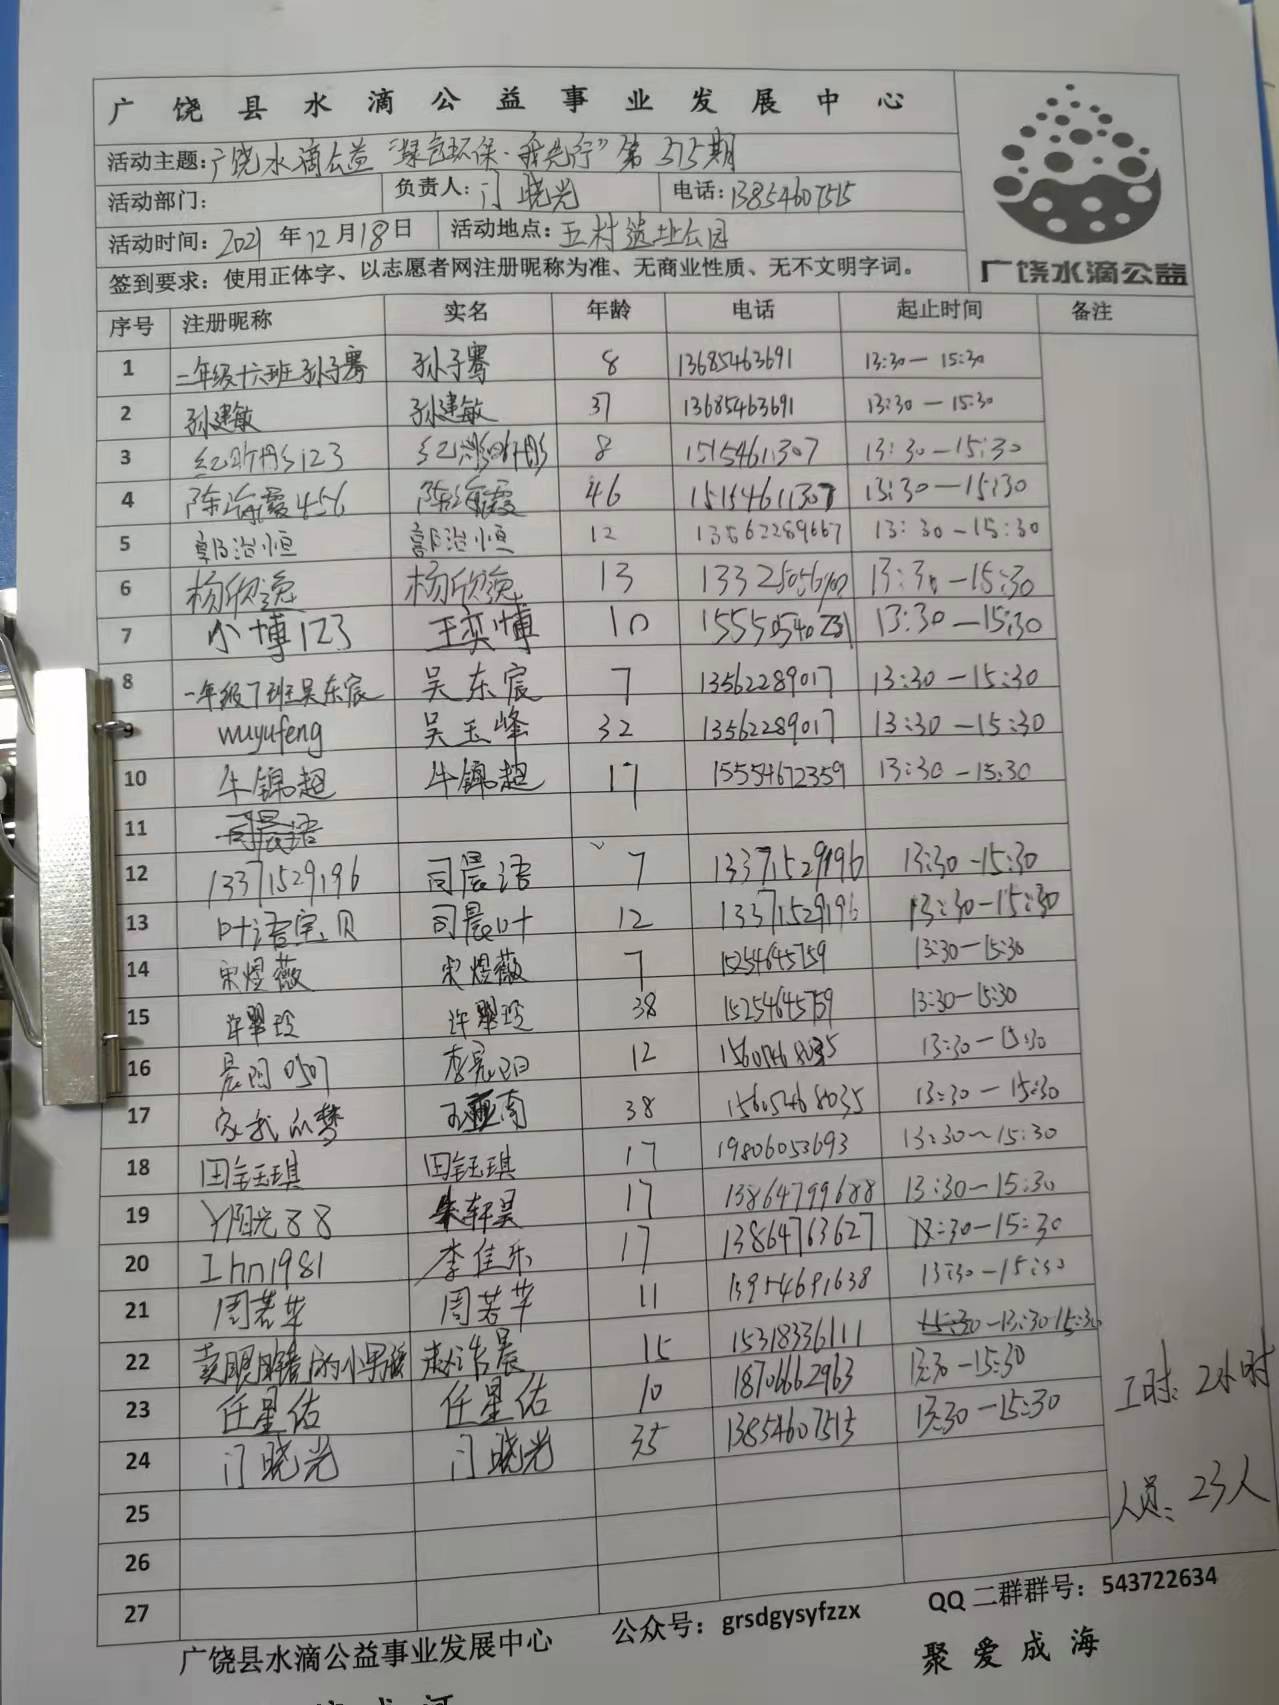 广饶县水滴公益事业发展中心
活动主题:广饶水滴公益“绿色环保·我先行”第375期
活动部门: 负责人:门晓光 电话:13854607515
活动时间:2021年12月18日 活动地点:五村遗址公园
广饶水滴公益
签到要求:使用正体字、以志愿者网注册昵称为准、无商业性质、无不文明字词。
序号 注册昵称 实名 年龄 电话 起止时间 备注
1 二年级十六班孙子骞 孙子骞 8 13685463691 13:30—15:30
2 孙建敏 孙建敏 37 13685463691 13:30—15:30
3 123 8 15154611307 13:30—15:30
4 陈海霞456 陈海霞 46 15154611307 13:30—15:30
5 郭治恒 郭治恒 12 13562289667 13:30—15:30
6 杨欣逸 杨欣逸 13 13:30—15:30
7 小博123 王奕博 10 15550540231 13:30—15:30
8 一年级7班吴东宸 吴东宸 7 13562289017 13:30—15:30
9 wuyufeng 吴玉峰 32 13562289017 13:30—15:30
10 牛锦超 牛锦超 17 15554672359 13:30—15:30
11 司晨语
12 13371529196 司晨语 7 13371529196 13:30-15:30
13 叶语宝贝 司晨叶 12 13371529196 13:30—15:30
14 宋煜薇 宋煜薇 7 15254645759 13:30—15:30
15 许翠玲 许翠玲 38 15254645759 13:30—15:30
16 晨阳0507 12 15605468035 13:30—15:30
17 家我的梦 38 15605468035 13:30—15:30
18 田钰琪 田钰琪 17 19806053693 13:30~15:30
19 Y阳光88 朱轩昊 17 13864799688 13:30—15:30
20 Ihn1981 李佳乐 17 13864763627 13:30—15:30
21 周若苹 周若苹 11 13954691638 13:30—15:30
22 黄眼睛的小男孩 赵浩晨 15 15318336111 13:30-15:30
23 任星佑 任星佑 10 18706662963 13:30-15:30
24 门晓光 门晓光 35 13854607515 13:30—15:30
工时:2小时
25
人员:23人
26
27
广饶县水滴公益事业发展中心 公众号:grsdgysyfzzx QQ二群群号:543722634
聚爱成海